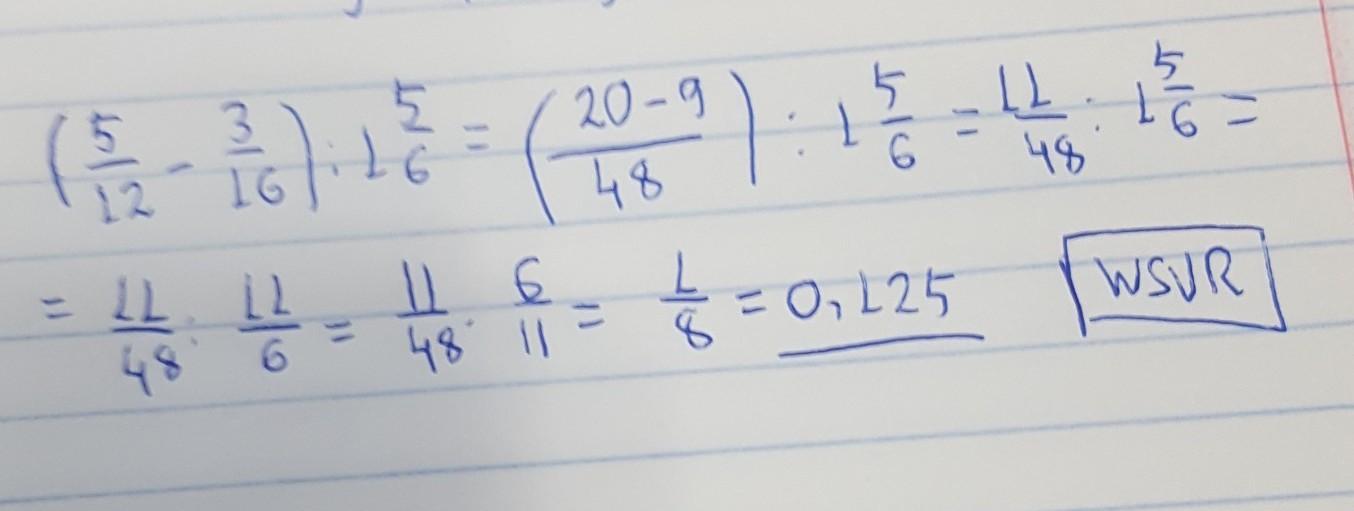 (5/12 - 3/16) : 1 5/6 = ((20-9)/48) : 1 5/6 = 11/48 : 1 5/6 =
= 11/48 : 11/6 = 11/48 · 6/11 = 1/8 = 0,125 WSVR